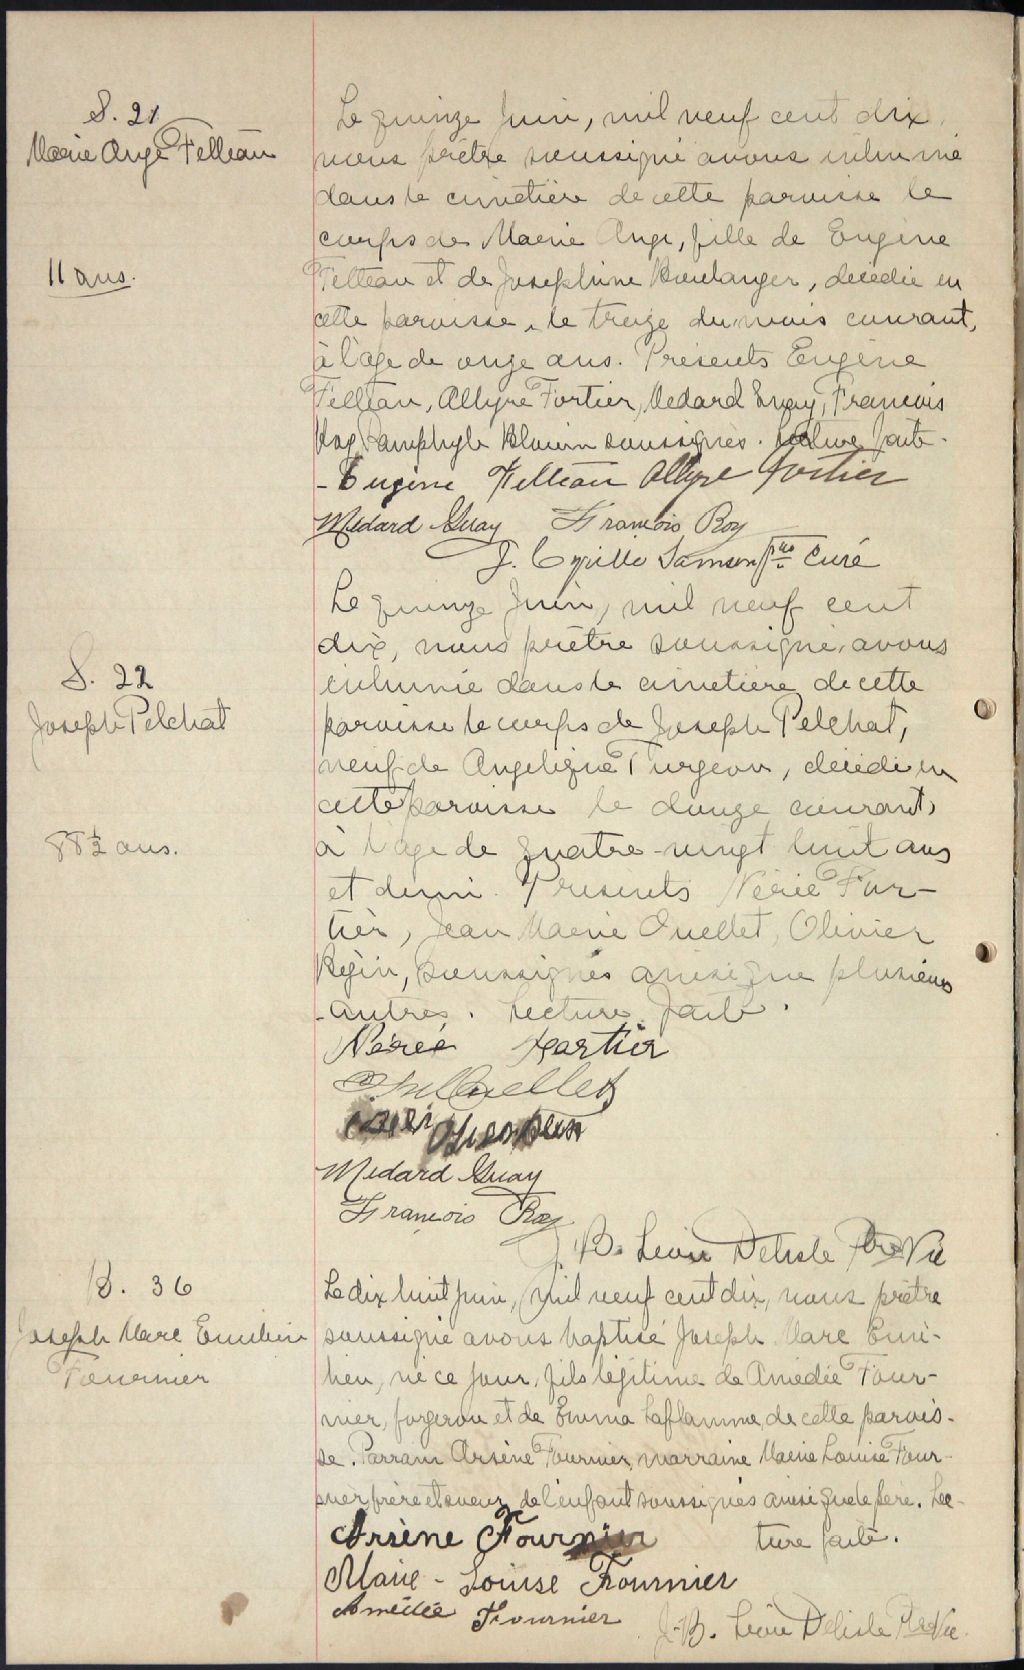 S. 21
Marie Ange Felteau
11 ans.
Le quinze Juin, mil neuf cent dix,
nous prêtre soussigné avons inhumé
dans le cimetière de cette paroisse le
corps de Marie Ange, fille de Eugène
Felteau et de Joséphine Boulanger, décédée en
cette paroisse, le treize du mois courant,
à l'âge de onze ans. Présents Eugène
Felteau, Allyre Fortier, Médard Guay, François
Roy, Pamphyle Blouin soussignés. Lecture faite.
- Eugène Felteau Allyre Fortier
Médard Guay François Roy
J. Cyrille Samson ptre Curé
S. 22
Joseph Pelchat
88 1/2 ans.
Le quinze Juin, mil neuf cent
dix, nous prêtre soussigné, avons
inhumé dans le cimetière de cette
paroisse le corps de Joseph Pelchat,
veuf de Angelique Turgeon, décédé en
cette paroisse le douze courant,
à l'âge de quatre-vingt huit ans
et demi. Présents Nérée For-
tier, Jean Marie Ouellet, Olivier
Bégin, soussignés ainsi que plusieurs
autres. Lecture faite.
Nérée Fortier
J M Ouellet
Médard Guay
François Roy
J. B. Léon Delisle Ptre Vic
B. 36
Joseph Marc Emilien
Fournier
Le dix huit juin, mil neuf cent dix, nous prêtre
soussigné avons baptisé Joseph Marc Emi-
lien, né ce jour, fils légitime de Amédée Four-
nier, forgeron et de Emma Laflamme, de cette parois-
se. Parrain Arsène Fournier, marraine Marie Louise Four-
nier frère et soeur de l'enfant soussignés ainsi que le père. Lec-
ture faite.
Arsène Fournier
Marie-Louise Fournier
Amédée Fournier
J.-B. Léon Delisle Ptre Vic.